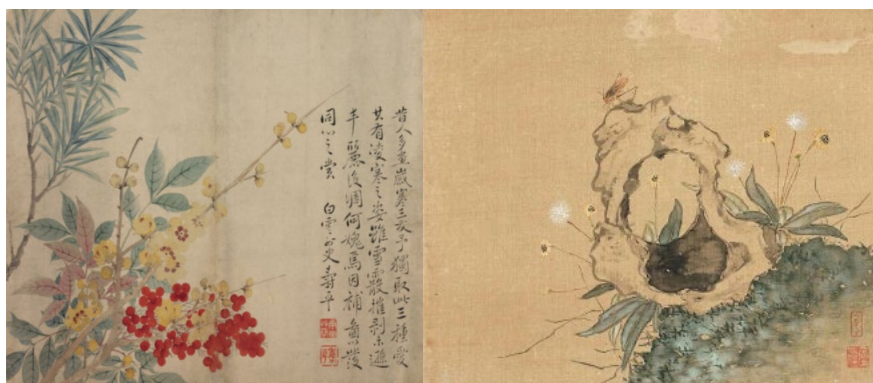 昔人多畫歲寒三友予獨取此三種愛
其有凌寒之姿雖雪霰摧剝未遜
丰麗後凋何媿焉因補圖以發
同心之賞 白雲外史壽平